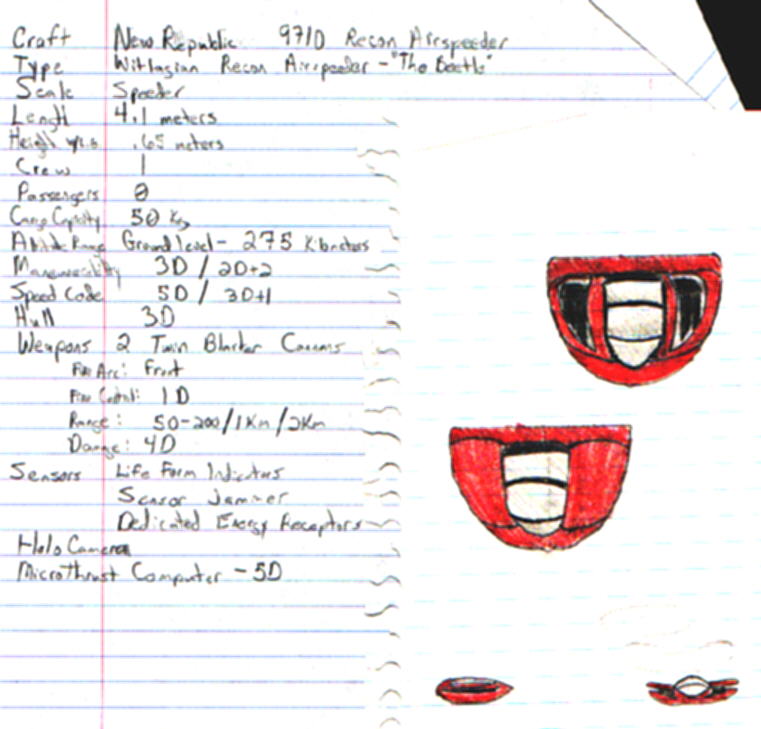 Craft New Republic 971D Recon Airspeeder
Type Wittlagian Recon Airspeeder - "The Beetle"
Scale Speeder
Length 4.1 meters
Height .65 meters
Crew 1
Passengers 0
Cargo Capacity 50 Kg
Altitude Range Ground level - 275 Kilometers
Maneuverability 3D / 2D+2
Speed Code 5D / 3D+1
Hull 3D
Weapons 2 Twin Blaster Cannons
Fire Arc: Front
Fire Control: 1D
Range: 50-200/1Km/2Km
Damage: 4D
Sensors Life Form Indicators
Sensor Jammer
Dedicated Energy Receptors
Holo Camera
MicroThrust Computer - 5D